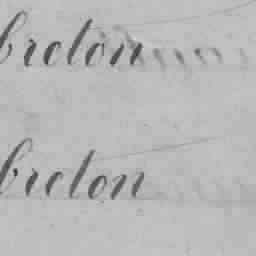 breton
breton